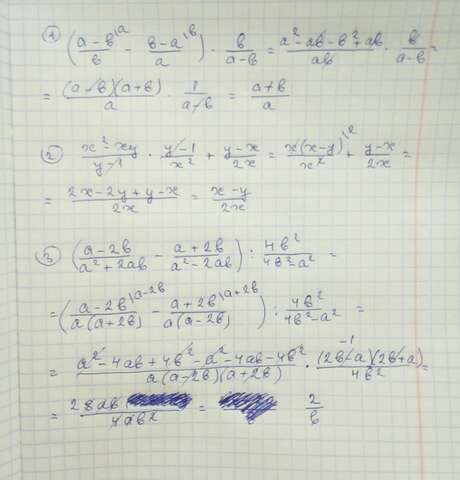 1) ((a-b)/b \a - (b-a)/a \b) · b/(a-b) = (a²-ab-b²+ab)/(ab) · b/(a-b) =
= ((a-b)(a+b))/a · 1/(a-b) = (a+b)/a
2) (x²-xy)/(y-1) · (y-1)/x² + (y-x)/(2x) = (x(x-y))/x² \2 + (y-x)/(2x) =
= (2x-2y+y-x)/(2x) = (x-y)/(2x)
3) ((a-2b)/(a²+2ab) - (a+2b)/(a²-2ab)) : 4b²/(4b²-a²) =
= ((a-2b)/(a(a+2b)) \a-2b - (a+2b)/(a(a-2b)) \a+2b) : 4b²/(4b²-a²) =
= (a²-4ab+4b²-a²-4ab-4b²)/(a(a-2b)(a+2b)) · -1 ((2b-a)(2b+a))/(4b²) =
= 2 8ab/(4ab²) = 2/b